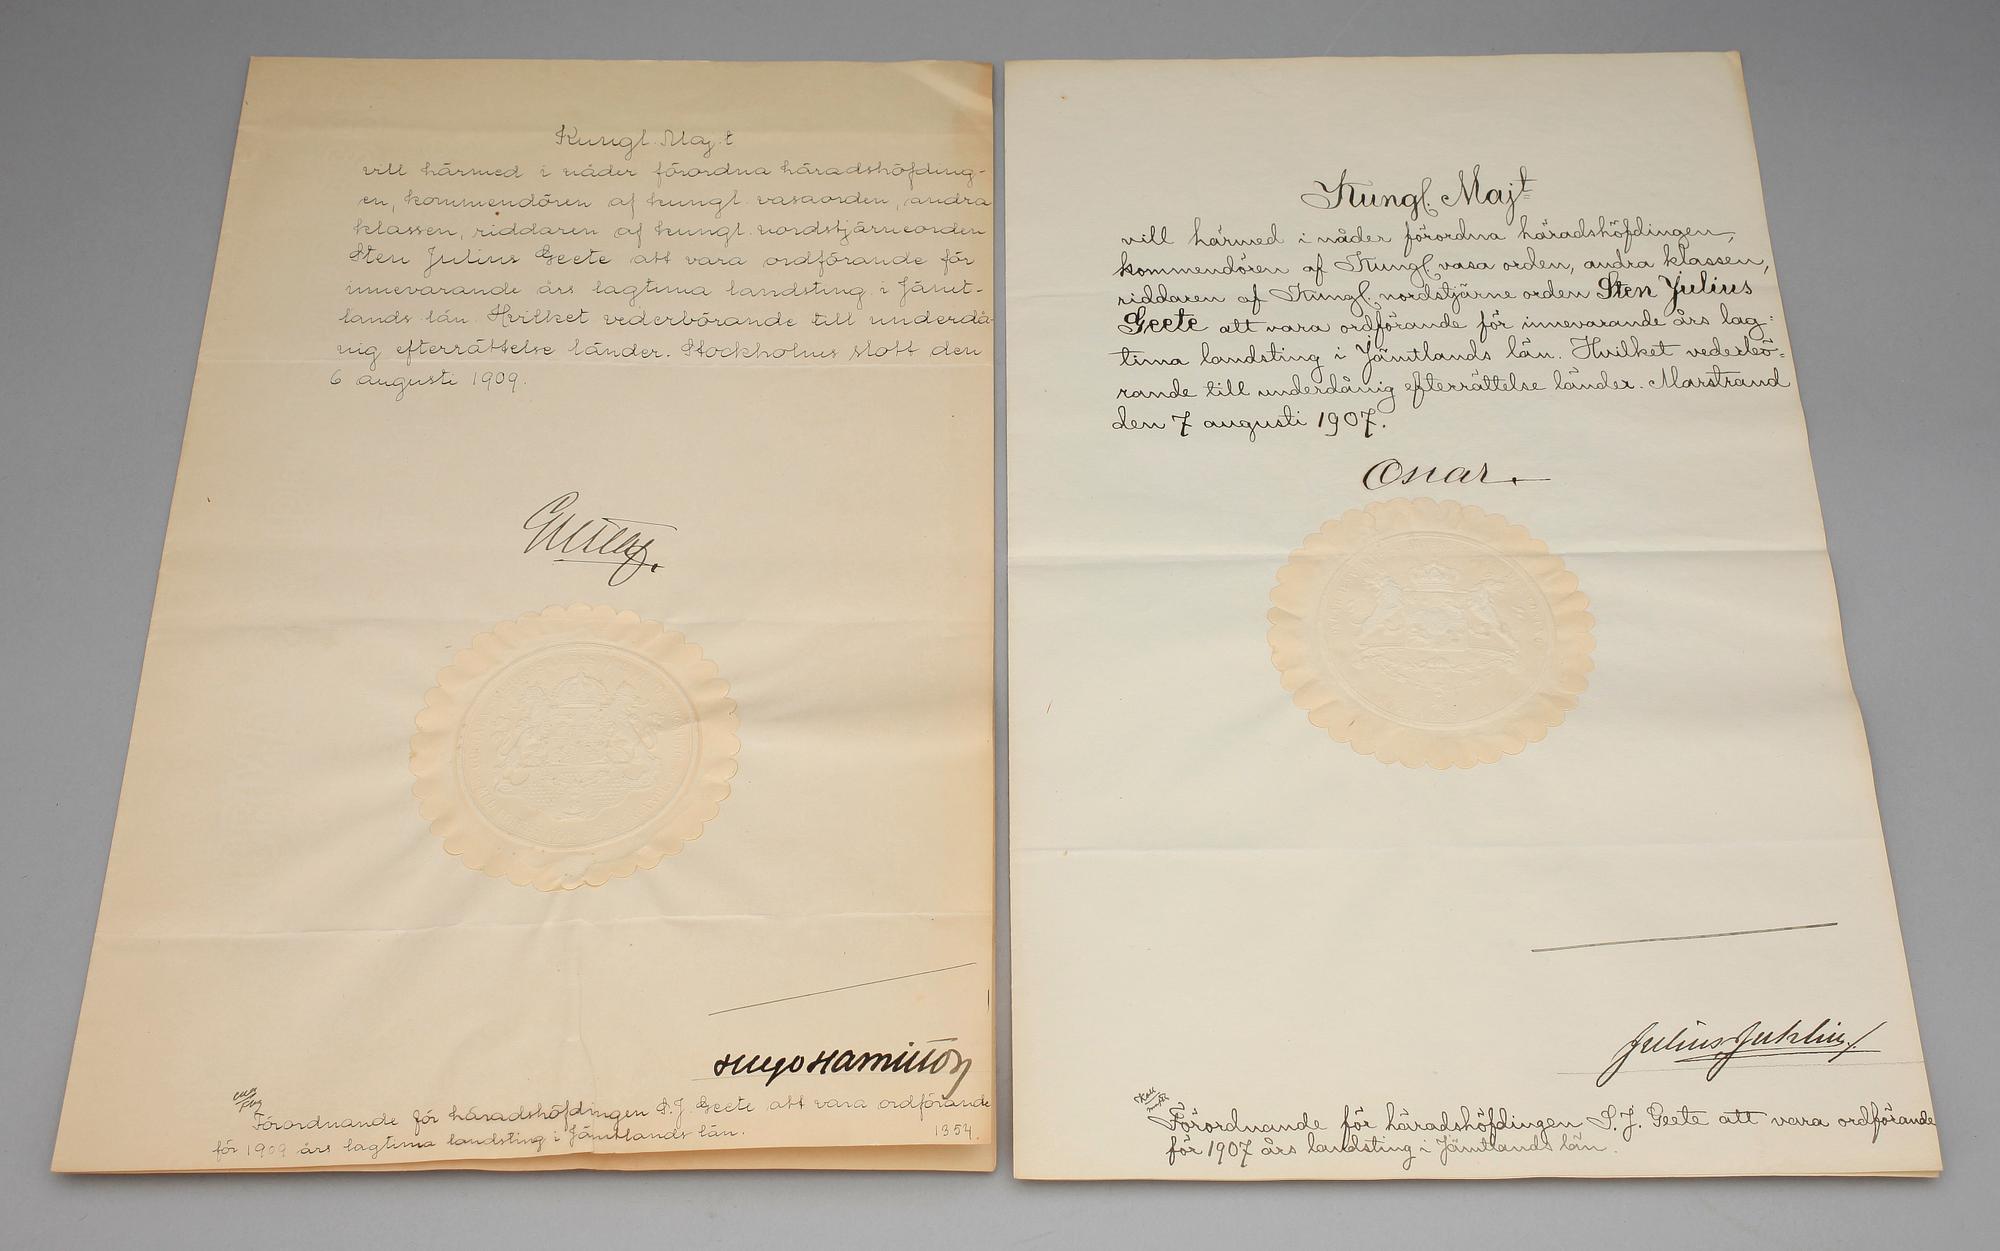 Kungl. Maj:t
vill härmed i nåder förordna häradshöfding-
en, kommendören af kungl. vasaorden, andra
klassen, riddaren af kungl. nordstjärneorden
Sten Julius Geete att vara ordförande för
innevarande års lagtima landsting i Jämt-
lands län. Hvilket vederbörande till underdå-
nig efterrättelse länder. Stockholms slott den
6 augusti 1909.
Gustaf.
Hugo Hamilton
Förordnande för häradshöfdingen S. J. Geete att vara ordförande
för 1909 års lagtima landsting i Jämtlands län.
1354.
Kungl. Maj:t
vill härmed i nåder förordna häradshöfdingen,
kommendören af Kungl. vasa orden, andra klassen,
riddaren af Kungl. nordstjärne orden Sten Julius
Geete att vara ordförande för innevarande års lag-
tima landsting i Jämtlands län. Hvilket vederbö-
rande till underdånig efterrättelse länder. Marstrand
den 7 augusti 1907.
Oscar.
Julius Juhlin.
Förordnande för häradshöfdingen S. J. Geete att vara ordförande
för 1907 års landsting i Jämtlands län.